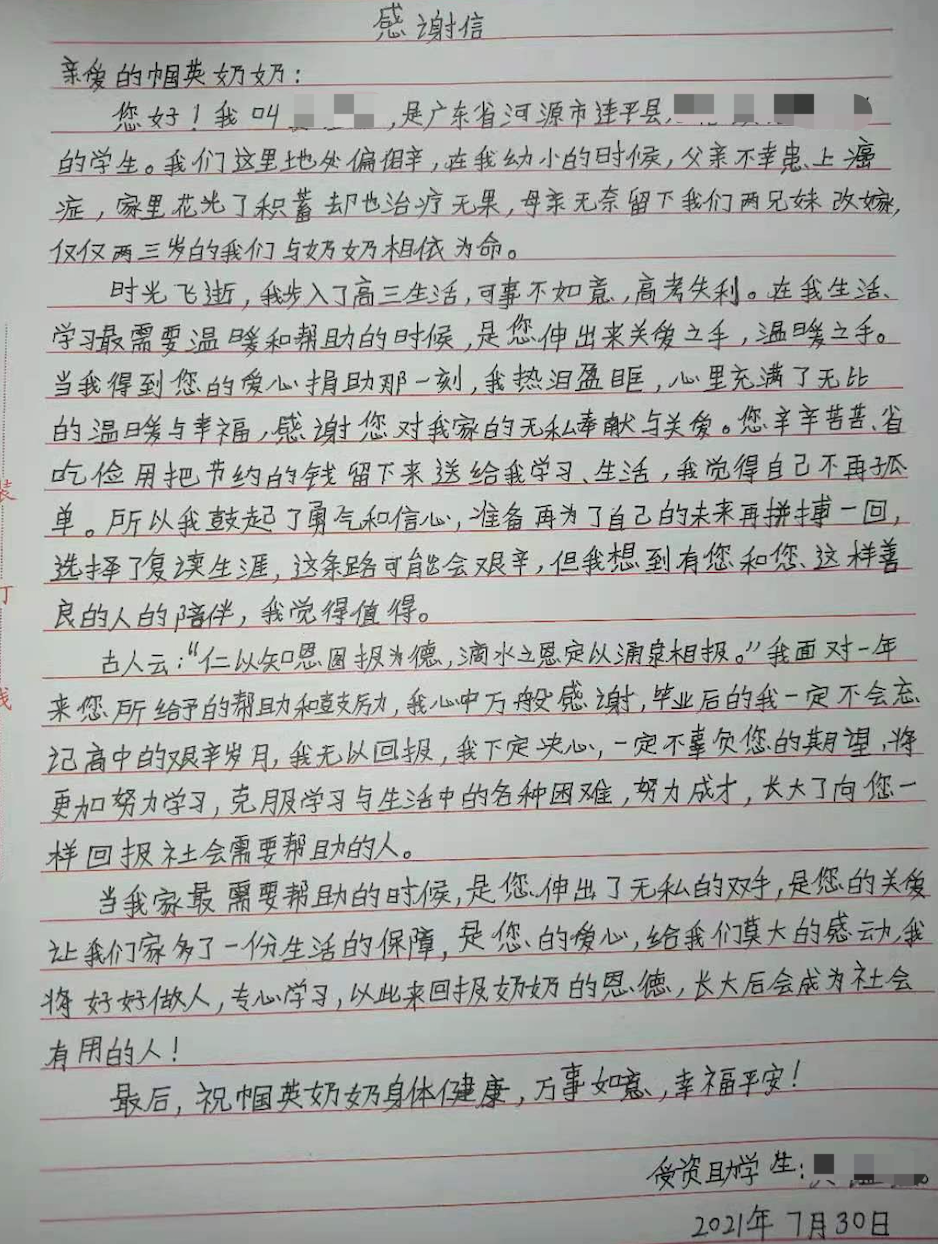 感谢信
亲爱的帼英奶奶:
您好!我叫 ,是广东省河源市连平县
的学生。我们这里地处偏僻,在我幼小的时候,父亲不幸患上癌
症,家里花光了积蓄却也治疗无果,母亲无奈留下我们两兄妹改嫁,
仅仅两三岁的我们与奶奶相依为命。
时光飞逝,我步入了高三生活,可事不如意,高考失利。在我生活、
学习最需要温暖和帮助的时候,是您伸出来关爱之手,温暖之手。
当我得到您的爱心捐助那一刻,我热泪盈眶,心里充满了无比
的温暖与幸福,感谢您对我家的无私奉献与关爱。您辛辛苦苦、省
吃俭用把节约的钱留下来送给我学习、生活,我觉得自己不再孤
单。所以我鼓起了勇气和信心,准备再为了自己的未来再拼搏一回,
选择了复读生涯,这条路可能会艰辛,但我想到有您和您这样善
良的人的陪伴,我觉得值得。
古人云:“仁以知恩图报为德,滴水之恩定以涌泉相报。”我面对一年
来您所给予的帮助和鼓励,我心中万般感谢,毕业后的我一定不会忘
记高中的艰辛岁月,我无以回报,我下定决心,一定不辜负您的期望,将
更加努力学习,克服学习与生活中的各种困难,努力成才,长大了向您一
样回报社会需要帮助的人。
当我家最需要帮助的时候,是您伸出了无私的双手,是您的关爱
让我们家多了一份生活的保障,是您的爱心,给我们莫大的感动,我
将好好做人,专心学习,以此来回报奶奶的恩德,长大后会成为社会
有用的人!
最后,祝帼英奶奶身体健康,万事如意,幸福平安!
受资助学生:
2021年7月30日
装
订